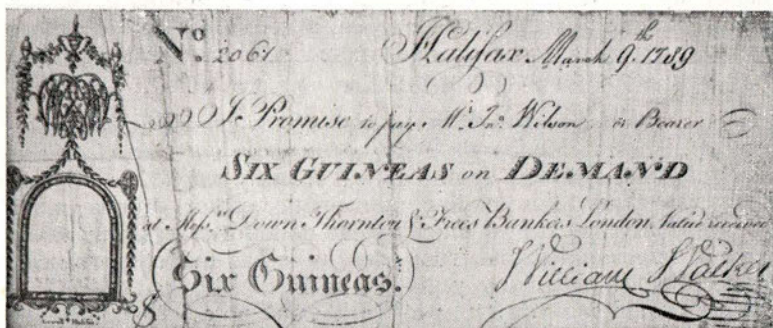 No. 2061 Halifax March 9.th 1789
I Promise to pay Mr. Jno. Wilson or Bearer
SIX GUINEAS on DEMAND
at Messrs. Down Thornton & Frees Bankers London, value received
Six Guineas. William Walker